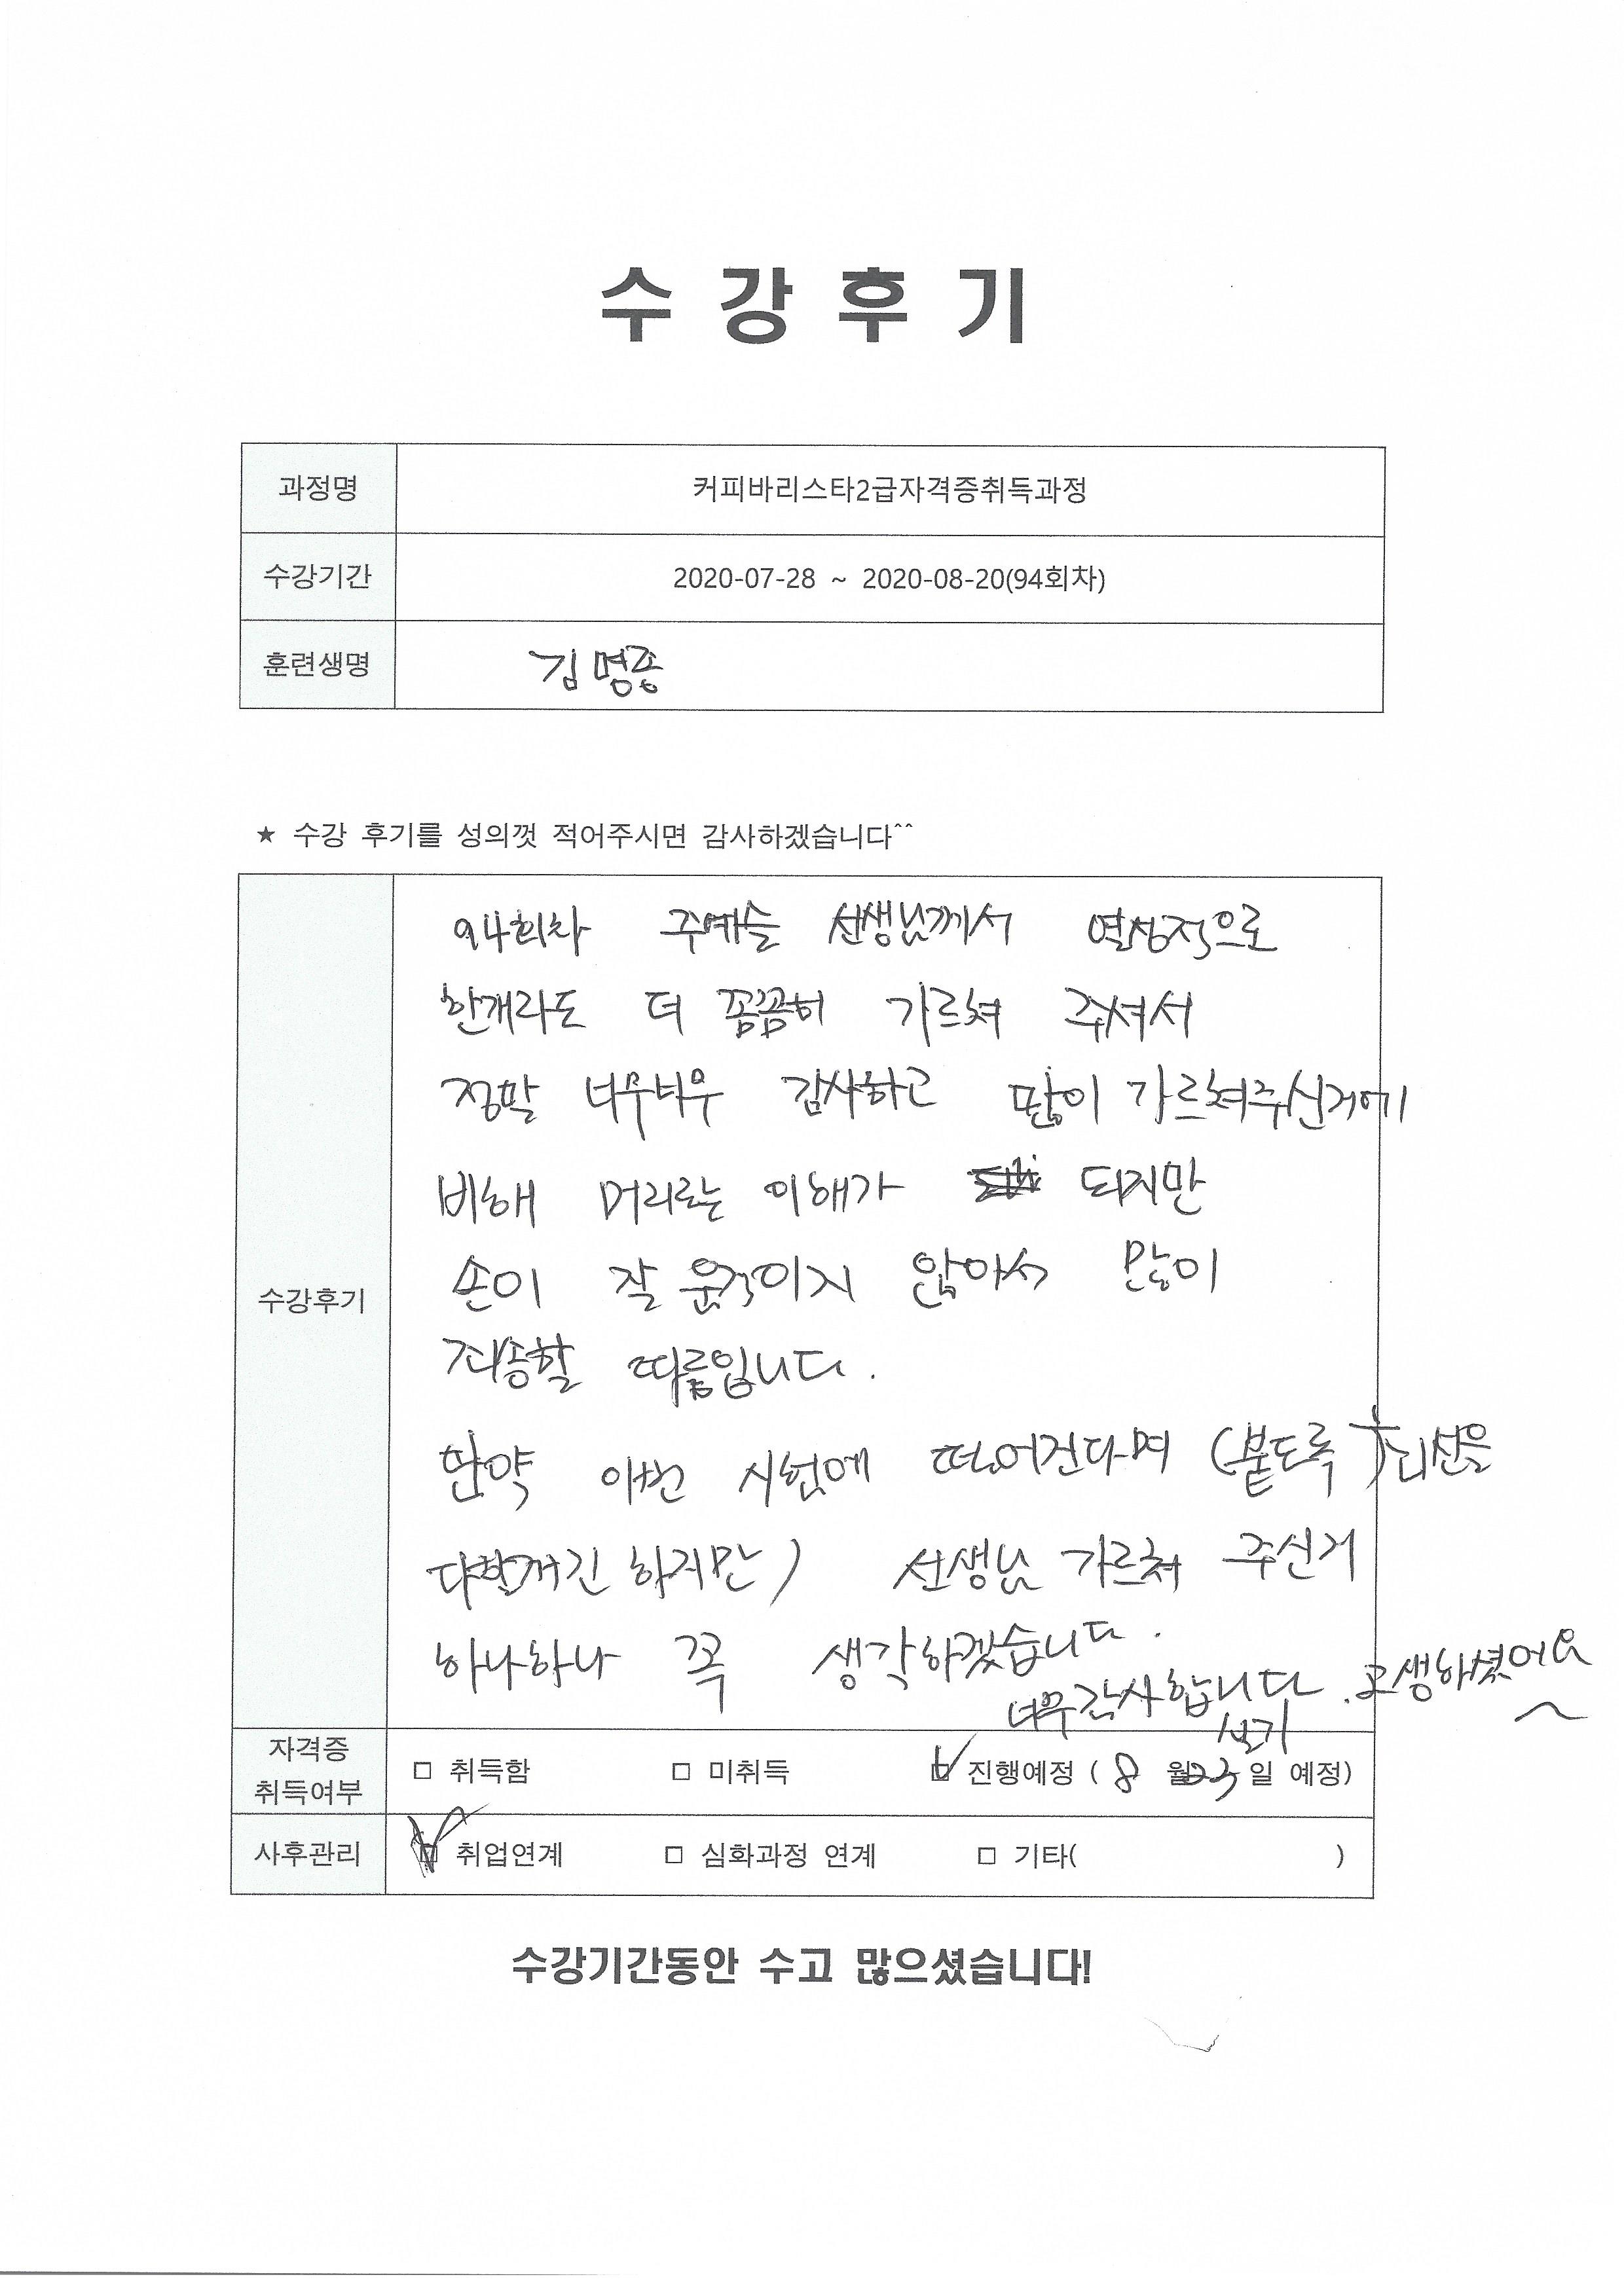 수 강 후 기
과정명 커피바리스타2급자격증취득과정
수강기간 2020-07-28 ~ 2020-08-20(94회차)
훈련생명 김명종
★ 수강 후기를 성의껏 적어주시면 감사하겠습니다^^
수강후기
94회차 주예슬 선생님께서 열성적으로
한개라도 더 꼼꼼히 가르쳐 주셔서
정말 너무너무 감사하고 많이 가르쳐주신거에
비해 머리로는 이해가 되지만
손이 잘 움직이지 않아서 많이
죄송할 따름입니다.
만약 이번 시험에 떨어진다며 (붙도록 최선을
다할꺼긴 하지만) 선생님 가르쳐 주신거
하나하나 꼭 생각하겠습니다.
너무감사합니다. 고생하셨어요~
실기
자격증 취득여부 □ 취득함 □ 미취득 ☑ 진행예정 ( 8 월 23 일 예정)
사후관리 ☑ 취업연계 □ 심화과정 연계 □ 기타( )
수강기간동안 수고 많으셨습니다!